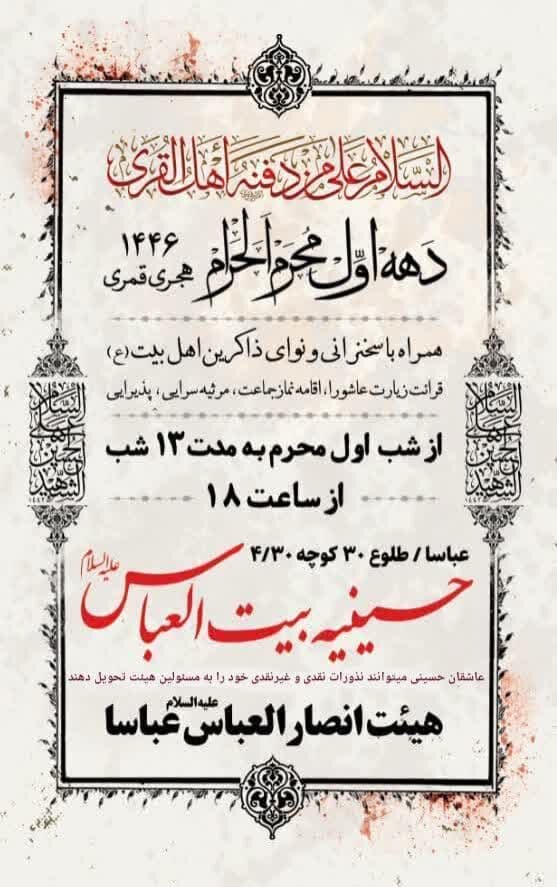 السلام علی من دفنه أهل القری
دهه اول محرم الحرام ۱۴۴۶ هجری قمری
همراه با سخنرانی و نوای ذاکرین اهل بیت (ع)
قرائت زیارت عاشورا، اقامه نماز جماعت، مرثیه سرایی، پذیرایی
از شب اول محرم به مدت ۱۳ شب
از ساعت ۱۸
السلام علی الحسین الشهید
السلام علی الحسین الشهید
عباسا / طلوع ۳۰ کوچه ۴/۳۰
حسینیه بیت العباس علیه السلام
عاشقان حسینی میتوانند نذورات نقدی و غیرنقدی خود را به مسئولین هیئت تحویل دهند
هیئت انصار العباس علیه السلام عباسا